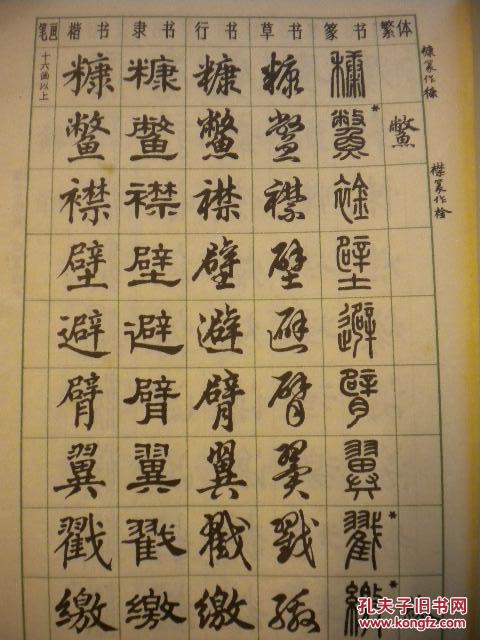 笔画 楷书 隶书 行书 草书 篆书 繁体
十六画以上
糠 糠 糠 糠 糠
鳖 鳖 鳖 鳖 鳖* 鱉
襟 襟 襟 襟 襟
壁 壁 壁 壁 壁
避 避 避 避 避
臂 臂 臂 臂 臂
翼 翼 翼 翼 翼
戳 戳 戳 戳 戳*
缴 缴 缴 缴 繳*
糠篆作穅
襟篆作䘳
孔夫子旧书网
www.kongfz.com